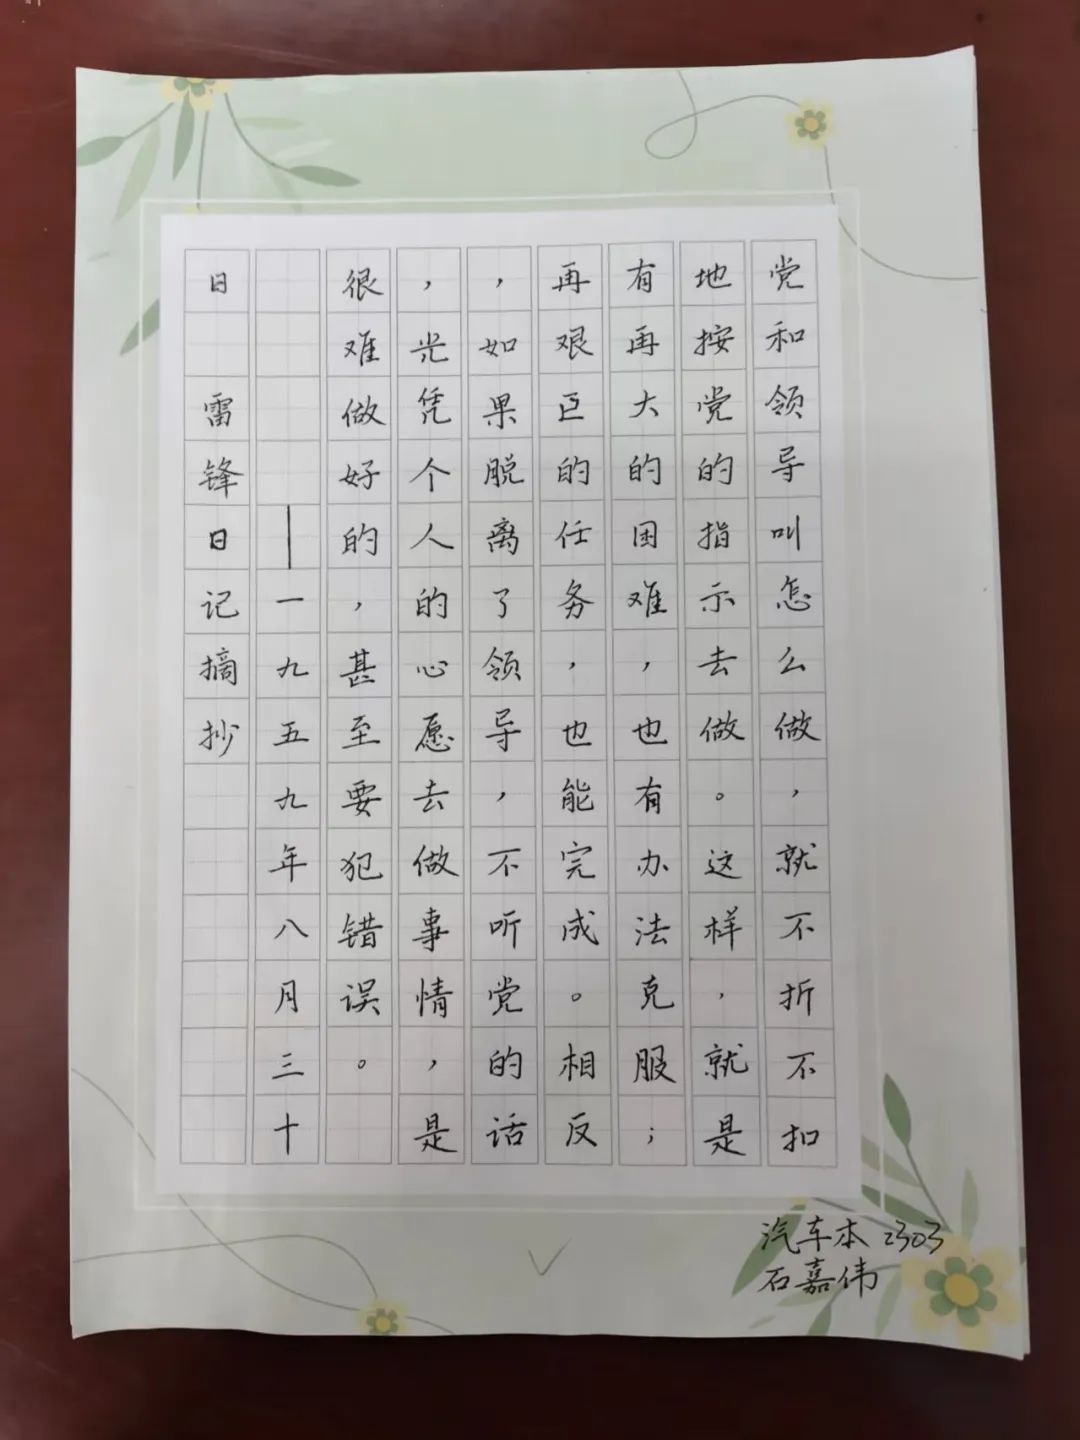 党和领导叫怎么做，就不折不扣
地按党的指示去做。这样，就是
有再大的困难，也有办法克服；
再艰巨的任务，也能完成。相反
，如果脱离了领导，不听党的话
，光凭个人的心愿去做事情，是
很难做好的，甚至要犯错误。
—一九五九年八月三十
日 雷锋日记摘抄
汽车本2303
石嘉伟